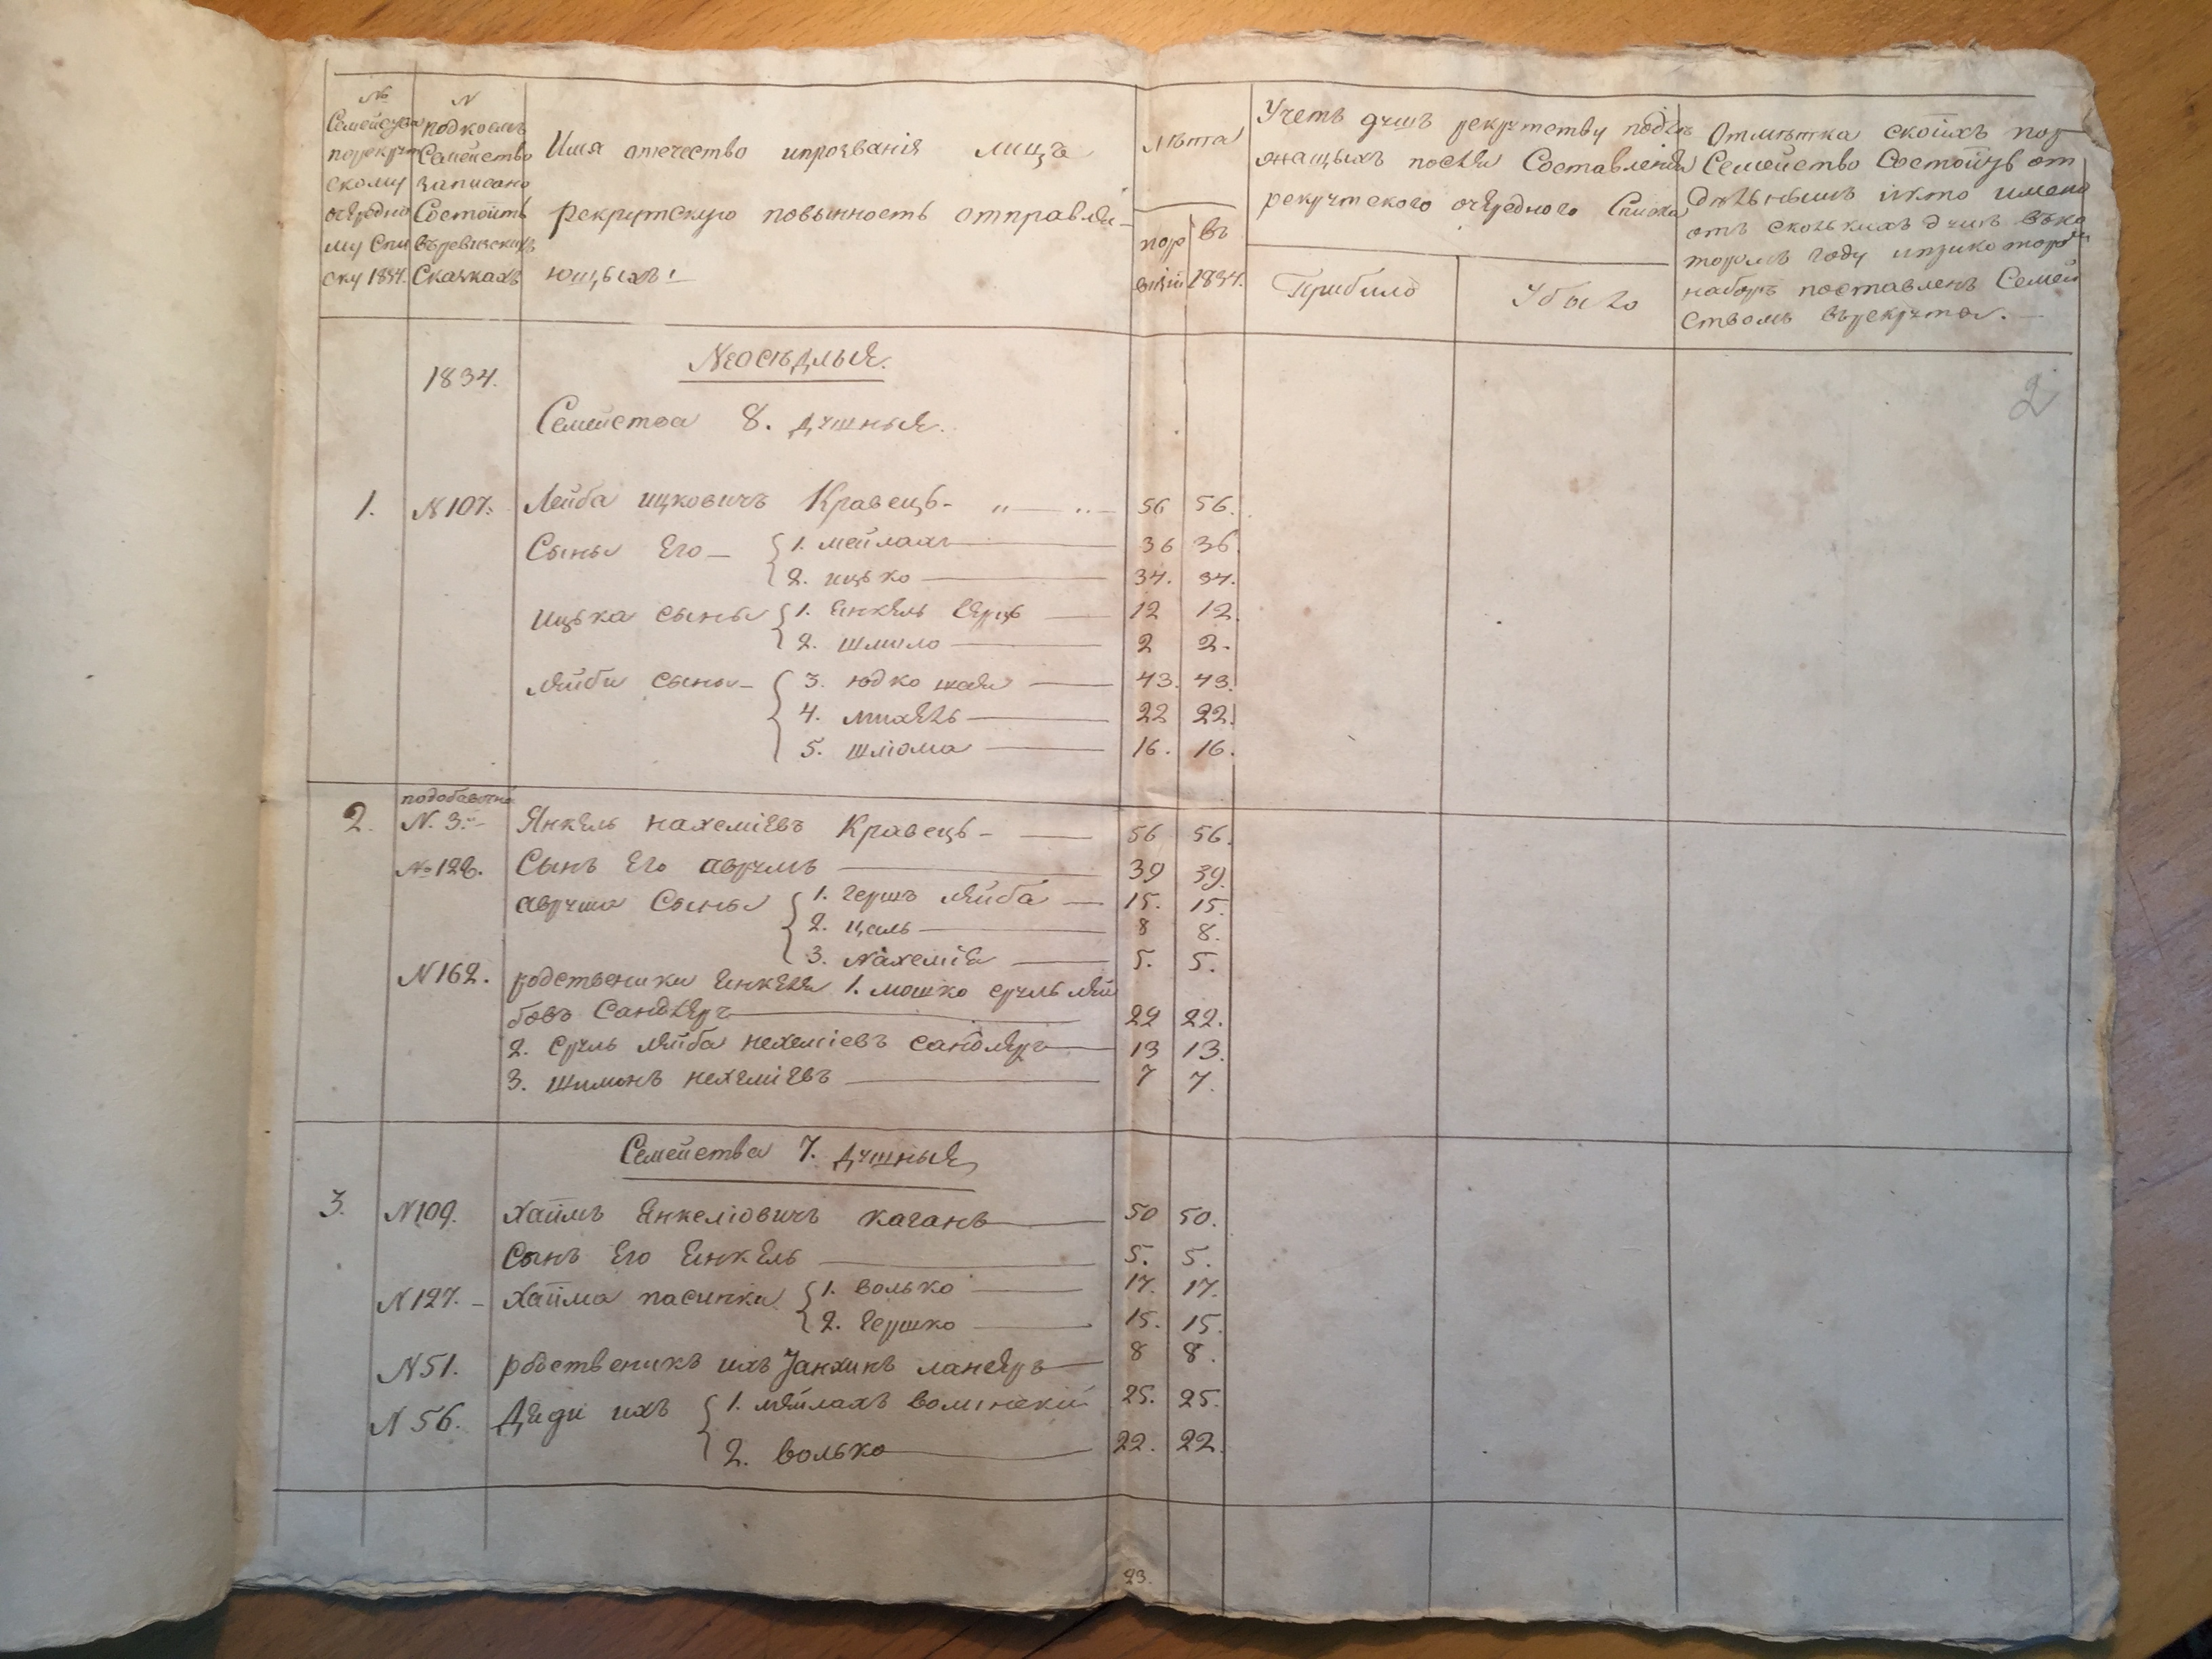 № Семейства порекрутскому очередному списку 1834.
N подкоемъ Семейство записано Состоитъ въревизскихъ Сказкахъ
Имя отечество ипрозванія лицъ
рекрутскую повынность отправля-
ющыхъ:
лѣта
по ре визіи
въ 1834.
Учетъ душъ рекрутству подле
жащыхъ после Составленія
рекрутского очередного Списка
Прибило
Убыло
Отмѣтка скоихъ пор
Семейство Состоитъ от
дѣльнымъ икто имено
отъ сколькихъ душъ въко
торомъ году иприкоторомъ
наборѣ поставленъ Семей
ствомъ врекрута.
2
1834.
Неосѣдлыя.
Семейства 8. душныя.
1. N 107. Лейба ицковичъ Кравець - " — " 56 56.
Сыны Его — 1. мейлахъ 36 36.
2. ицько 34. 34.
ицька сыны 1. Енкель герць 12 12.
2. шмило 2 2.
лейби сыны — 3. юдко шая 43. 43.
4. михель 22 22.
5. шліома 16. 16.
подобавочно
2. N. 3. - Янкель нахеміевъ Кравець - 56 56.
№ 128. Сынъ Его аврумъ 39 39.
аврума Сыны 1. гершъ лейба 15. 15.
2. цаль 8 8.
3. Нахемія 5. 5.
N 162. родственики Енкеля 1. мошко сруль лей
бовъ Сандлеръ 22 22.
2. сруль лейба нехеміевъ сандлеръ 13 13.
3. шимонъ нехеміевъ 7 7.
Семейства 7. душныя
3. N 109. хаимъ Янкеліовичъ каганъ 50 50.
Сынъ Его Енкель 5. 5.
N 127. - хаима пасинки 1. волько 17. 17.
2. гершко 15. 15.
N 51. родственикъ ихъ ландеръ 8 8.
N 56. Дяди ихъ 1. мейлахъ волинскій 25. 25.
2. волько 22. 22.
23.